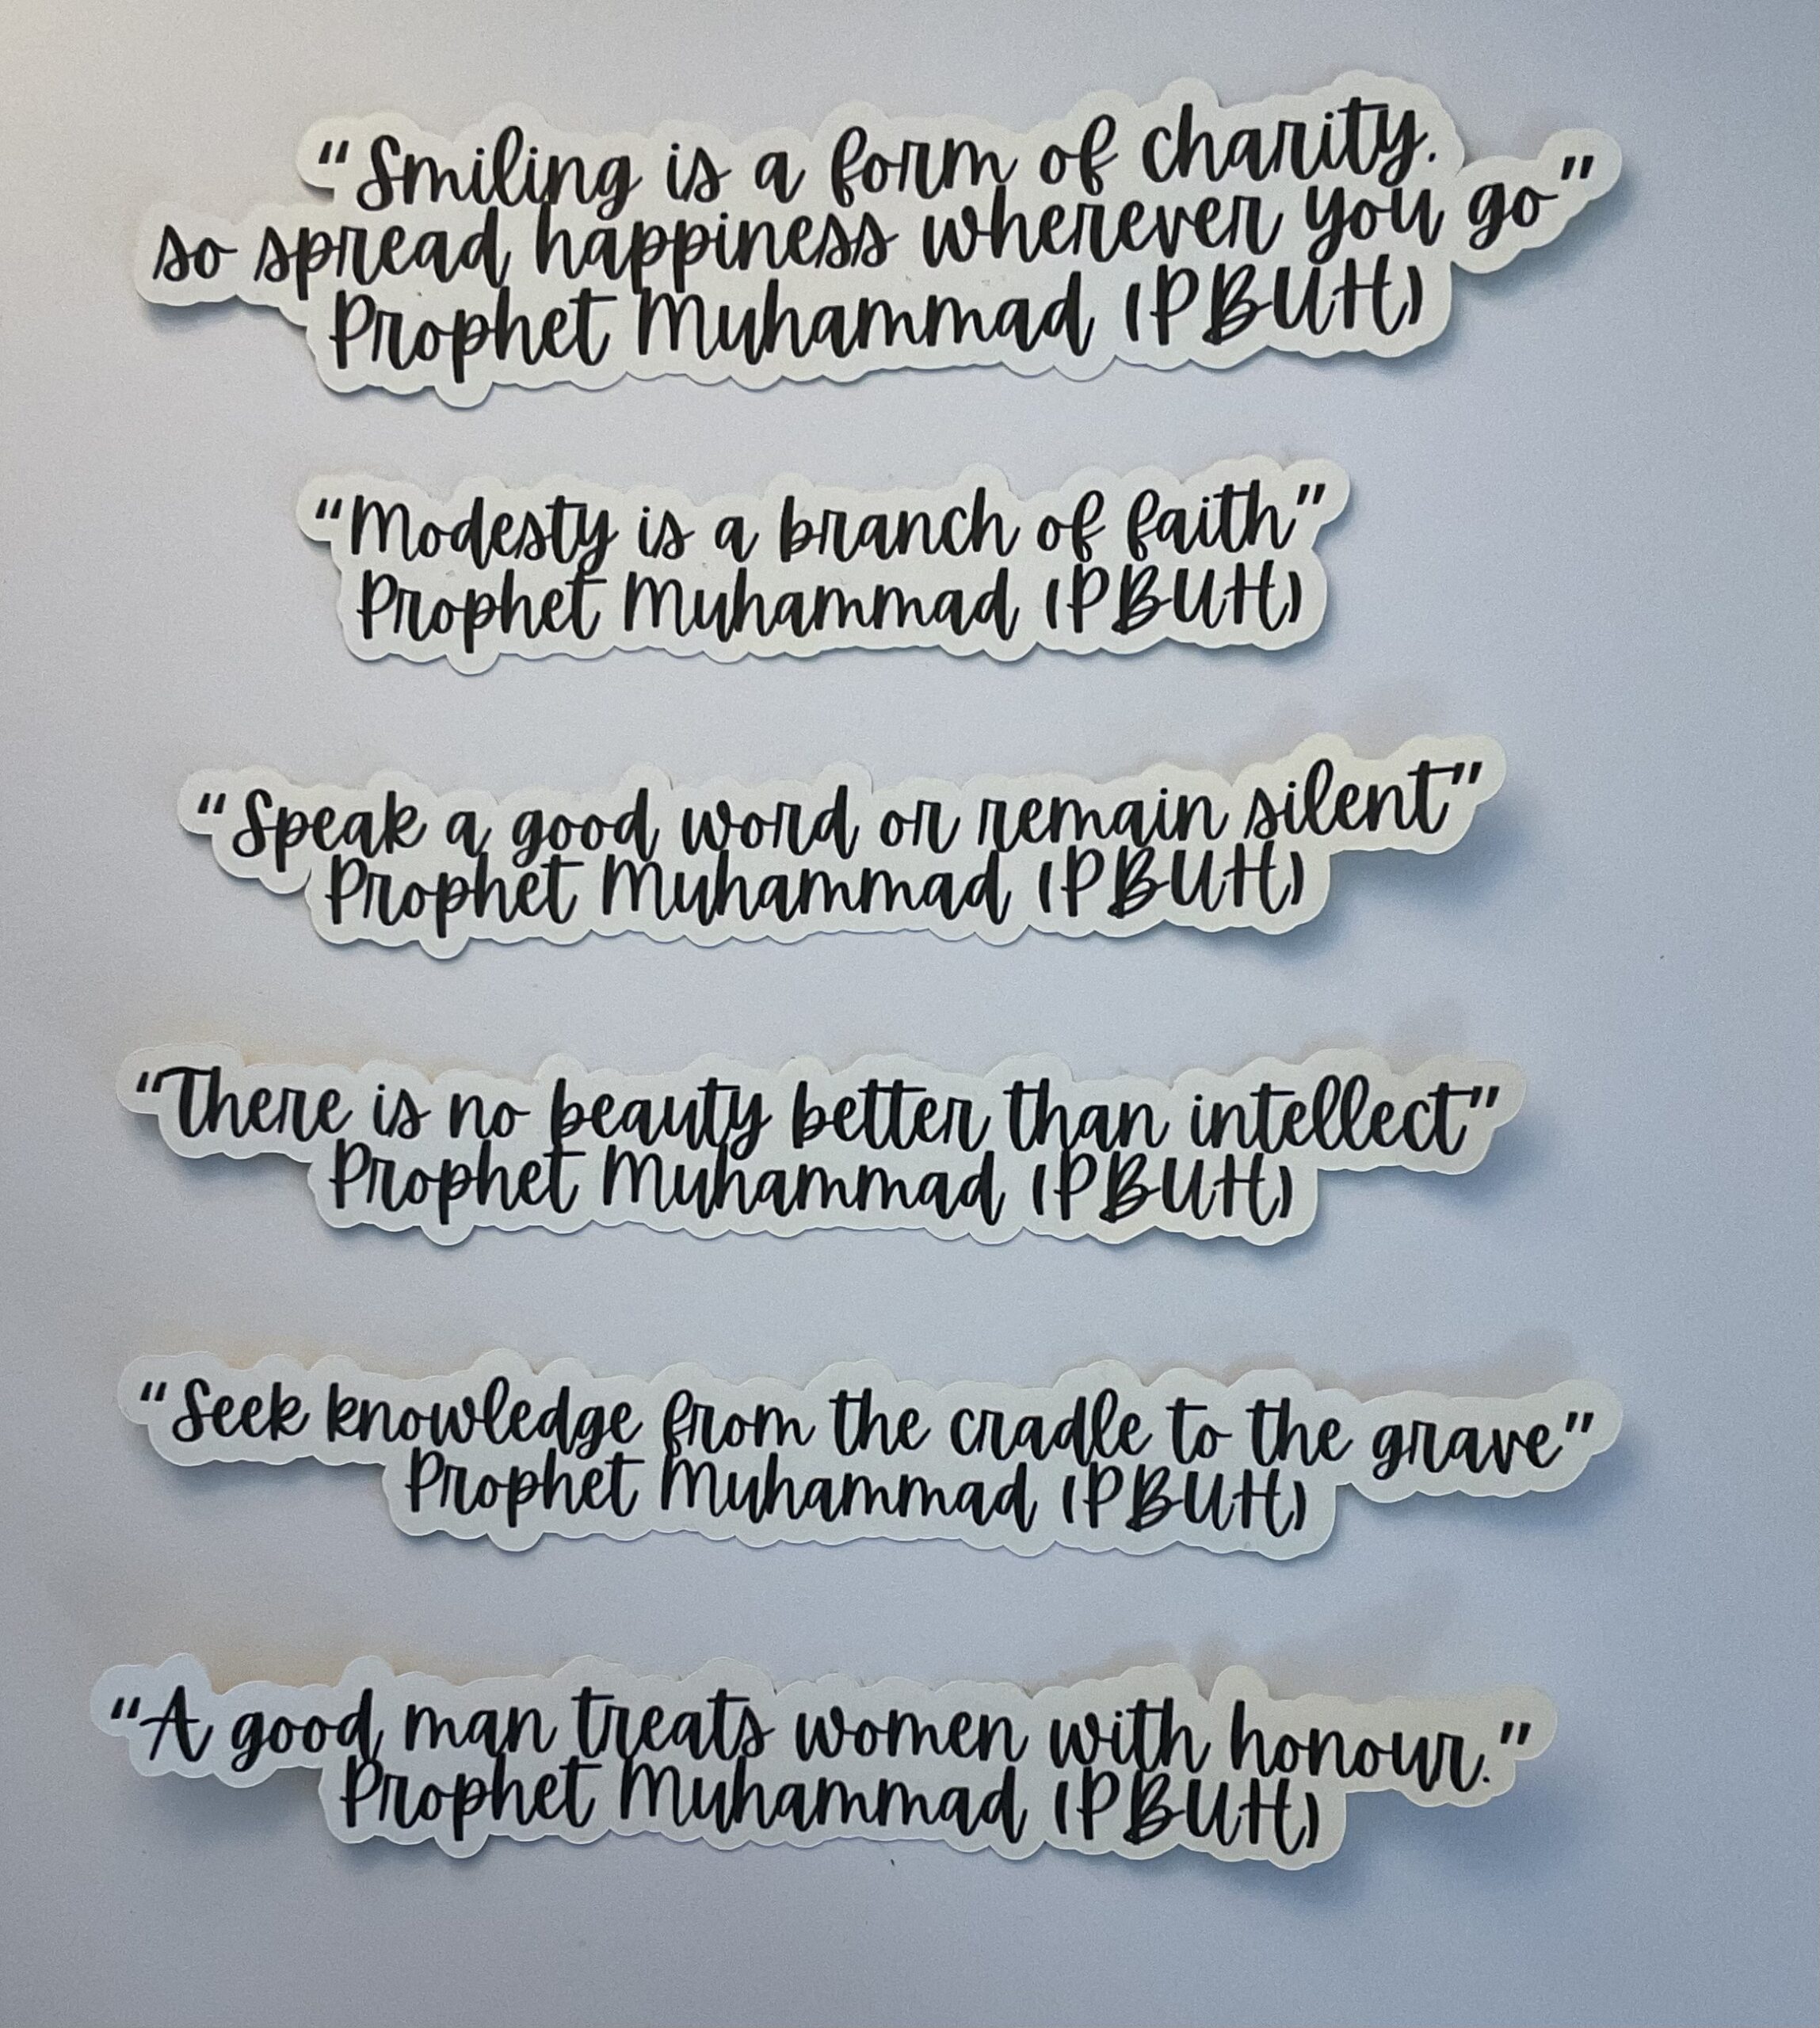 “Smiling is a form of charity.
so spread happiness wherever you go”
Prophet Muhammad (PBUH)
“Modesty is a branch of faith”
Prophet Muhammad (PBUH)
“Speak a good word or remain silent”
Prophet Muhammad (PBUH)
“There is no beauty better than intellect”
Prophet Muhammad (PBUH)
“Seek knowledge from the cradle to the grave”
Prophet Muhammad (PBUH)
“A good man treats women with honour.”
Prophet Muhammad (PBUH)